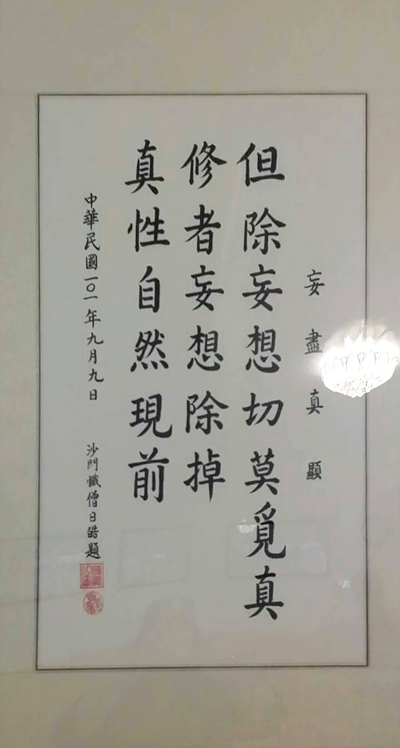 妄盡真顯
但除妄想切莫覓真
修者妄想除掉
真性自然現前
中華民國一0一年九月九日
沙門懺僧日皓題